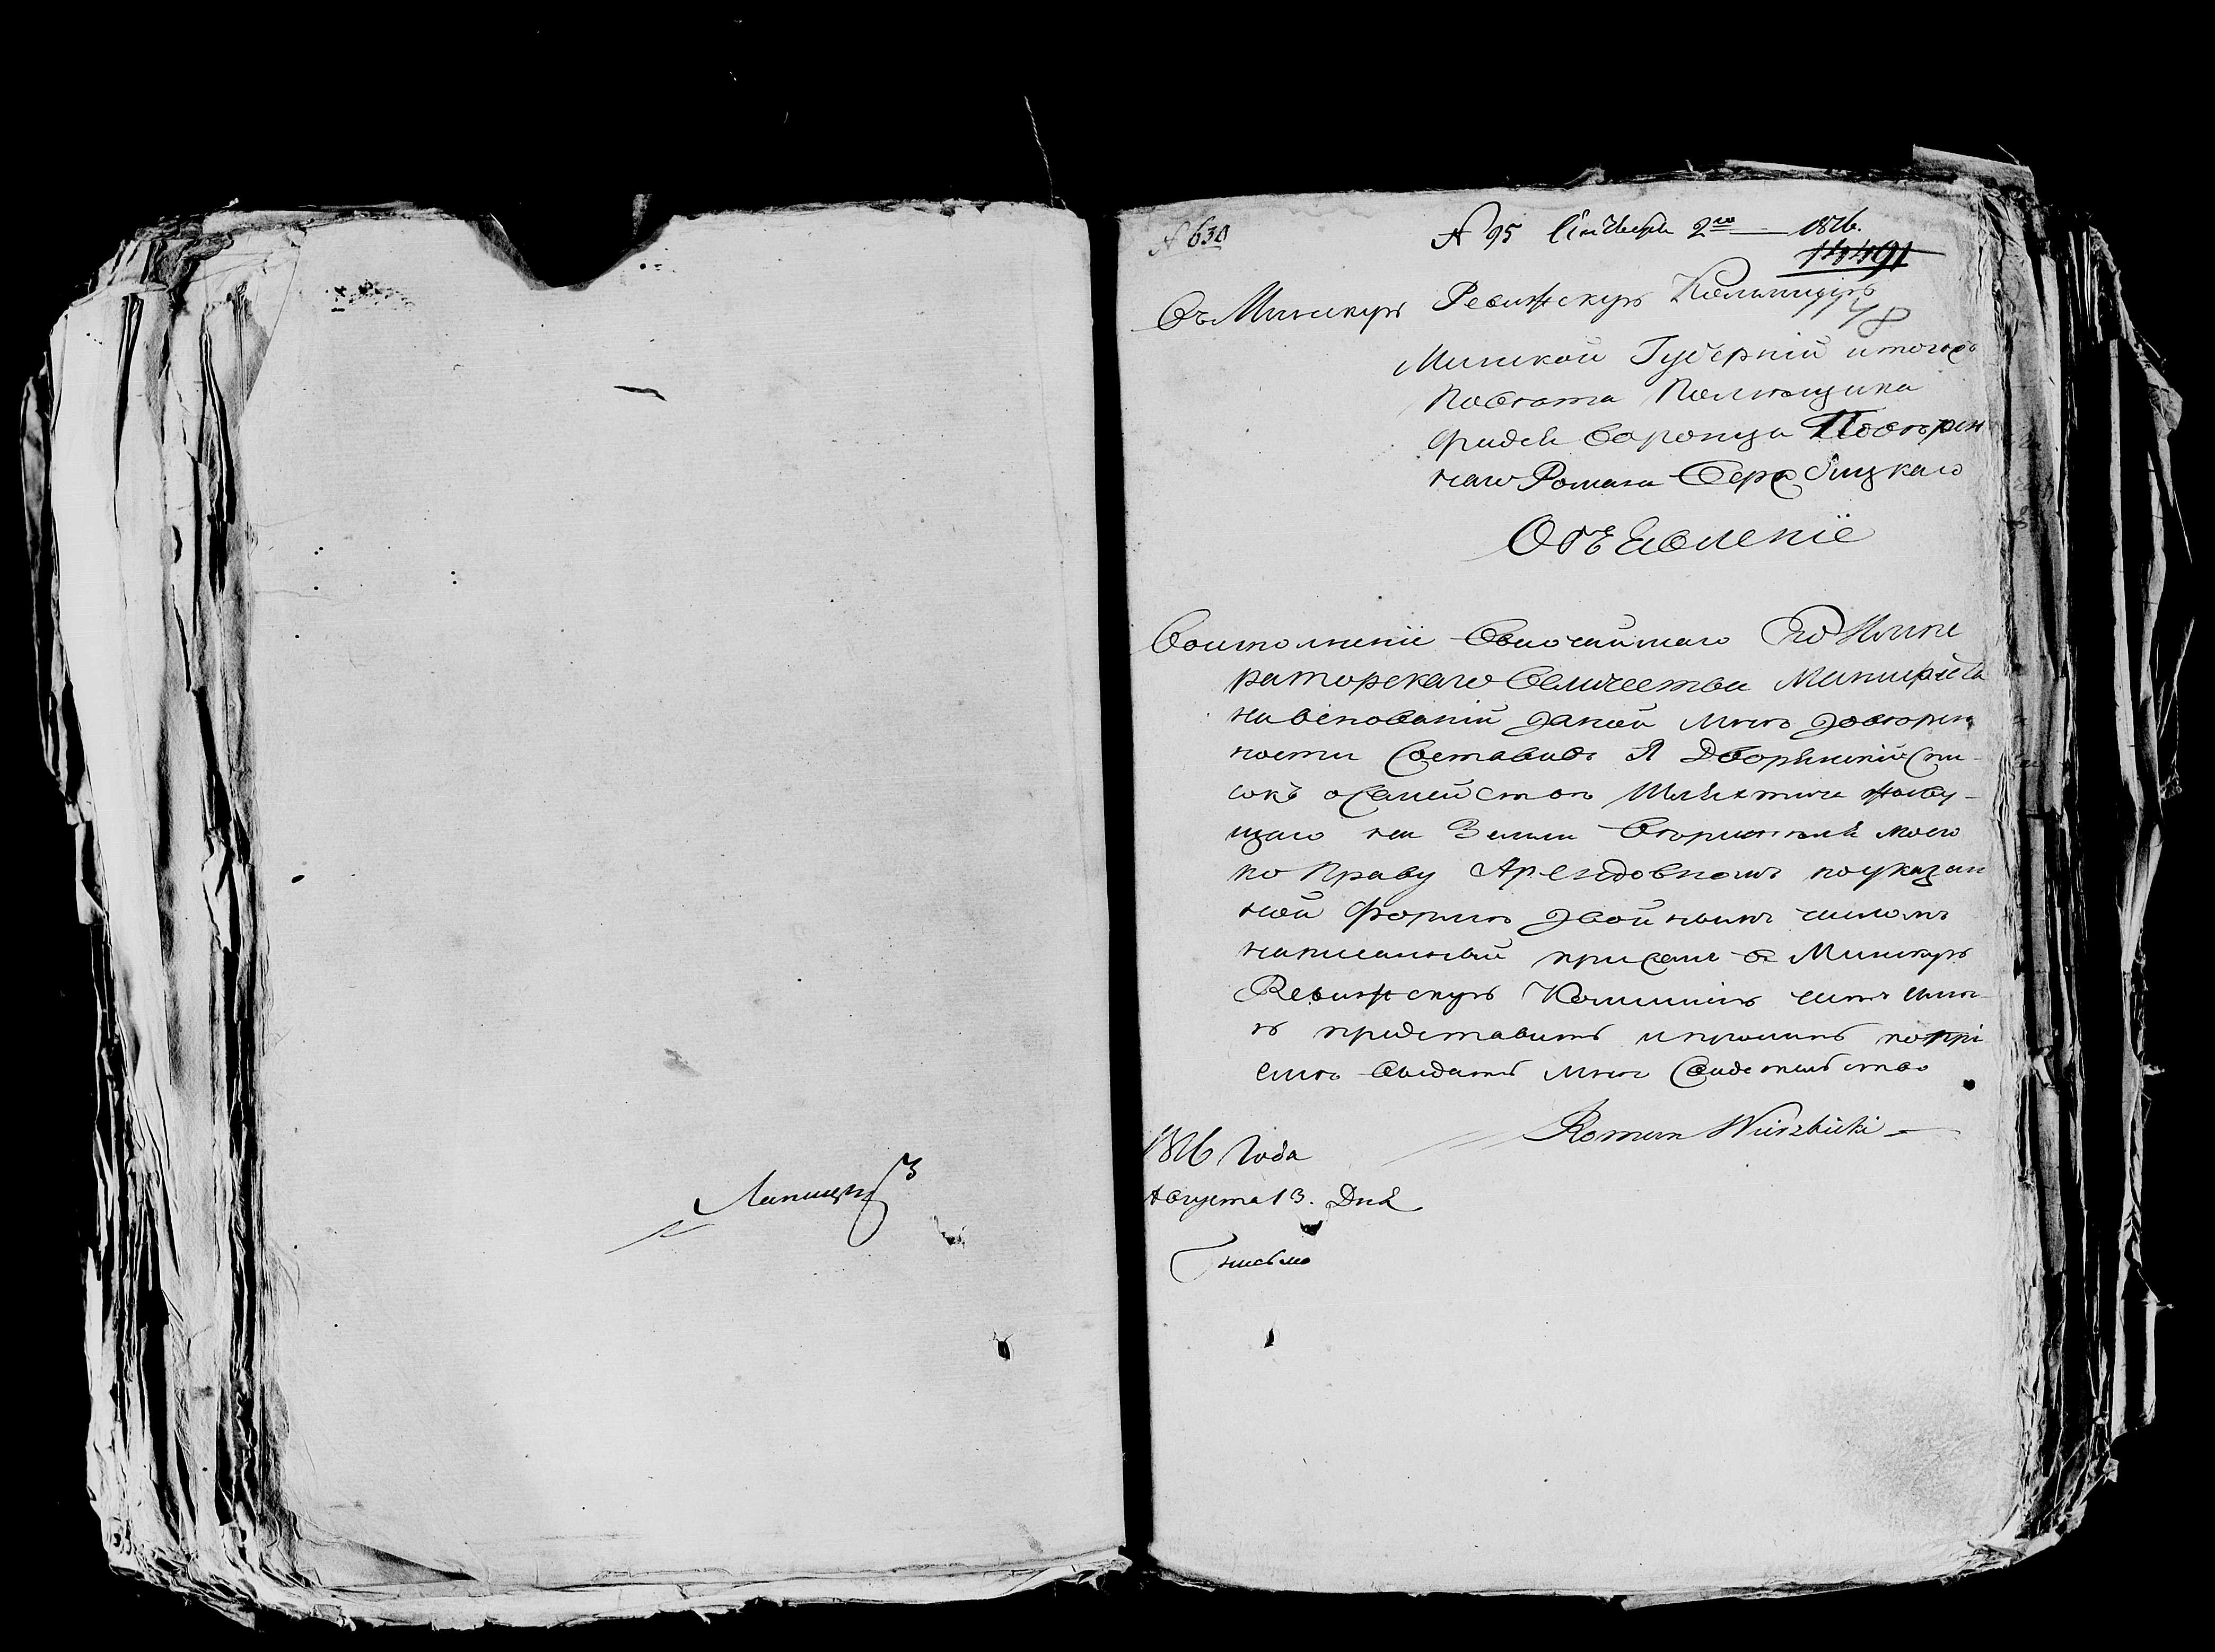 № 630
№ 95 Сентября 2го 1816.
Въ Минскую Ревижскую Коммиссию
48
Минской Губерніи и тогожъ
Повета Помещика
Повѣрен
наго Романа Вержбицкаго
Объявленіе
Воисполненіе Высочайшаго Его Импе
раторскаго Величества Манифеста
на Основаніи даной мнѣ довѣрен
ности Составивъ я Дворянскій Спи-
сокъ о Семействѣ Шляхтича живу-
щаго на Земли Вѣрителя моего
по Праву Арендовному по указан
ной форми двойнымъ числомъ
написанный при семъ въ Минскую
Ревижскую Комиссию симъ
представить и просить по прі
емѣ выдать мнѣ Свидетельство
Roman Wierzbicki
1816 Года
Августа 13. Дня